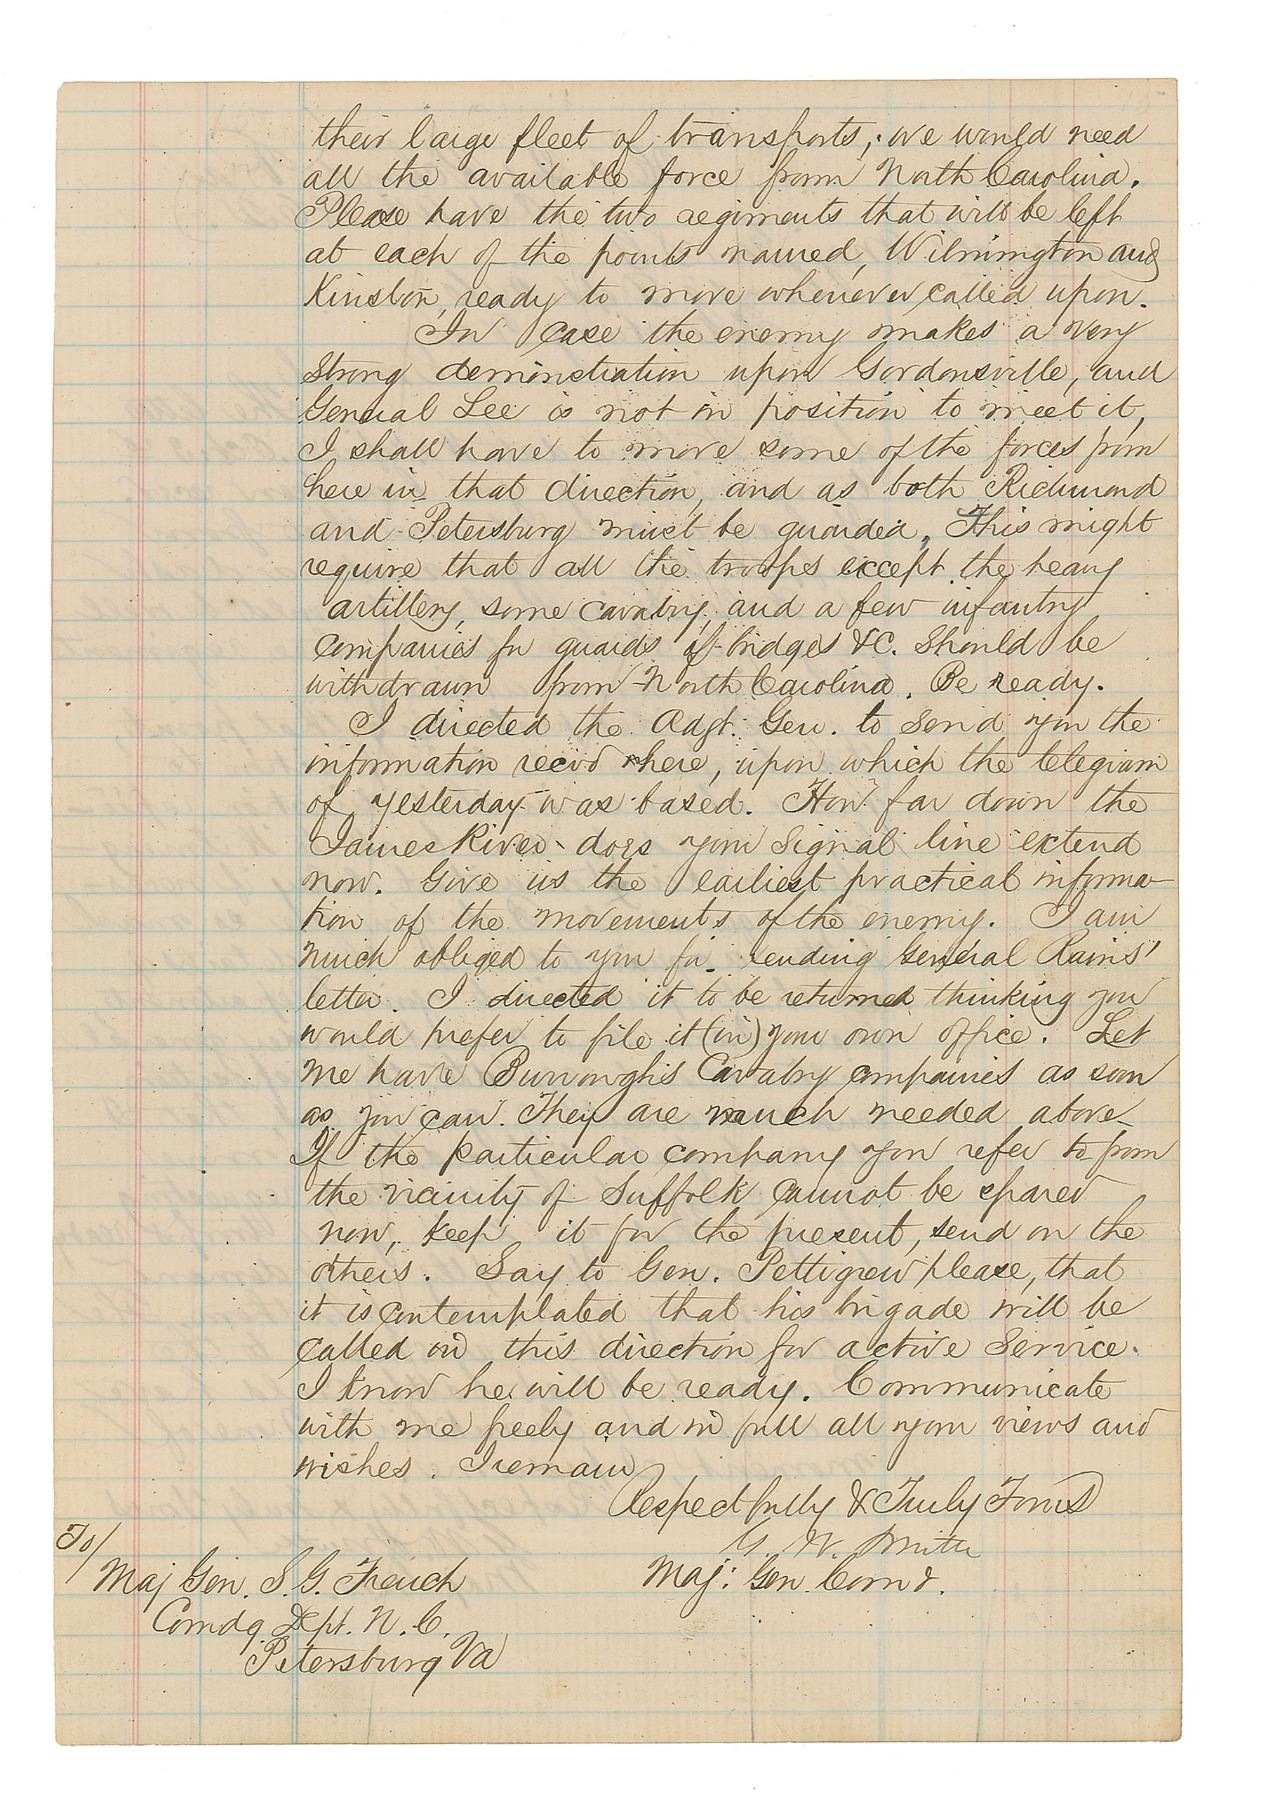 their large fleet of transports; we would need
all the available force from North Carolina.
Please have the two regiments that will be left
at each of the points named, Wilmington and
Kinston, ready to move whenever called upon.
In case the enemy makes a very
strong demonstration upon Gordonsville, and
General Lee is not in position to meet it,
I shall have to move some of the forces from
here in that direction, and as both Richmond
and Petersburg must be guarded, This might
require that all the troops except the heavy
artillery, some cavalry, and a few infantry
companies for guards of bridges &C. Should be
withdrawn from North Carolina. Be ready.
I directed the Adgt. Gen. to send you the
information recivd here, upon which the telegram
of yesterday was based. How far down the
James River does your Signal line extend
now. Give us the earliest practical informa-
tion of the movements of the enemy. I am
much obliged to you for sending General Rains'
letter. I directed it to be returned thinking you
would prefer to file it (in) your own office. Let
me have Burroughs Cavalry companies as soon
as you can. They are much needed above
If the particular company you refer to from
the vicinity of Suffolk cannot be spared
now, keep it for the present, send on the
others. Say to Gen. Pettigrew please, that
it is contemplated that his brigade will be
called in this direction for active Service.
I know he will be ready. Communicate
with me freely and in full all your views and
wishes. I remain
Respectfully & Truly Yours
G. W. Smith
Maj: Gen Comd.
To/
Maj Gen. S. G. French
Comdg Dept. N. C.
Petersburg Va